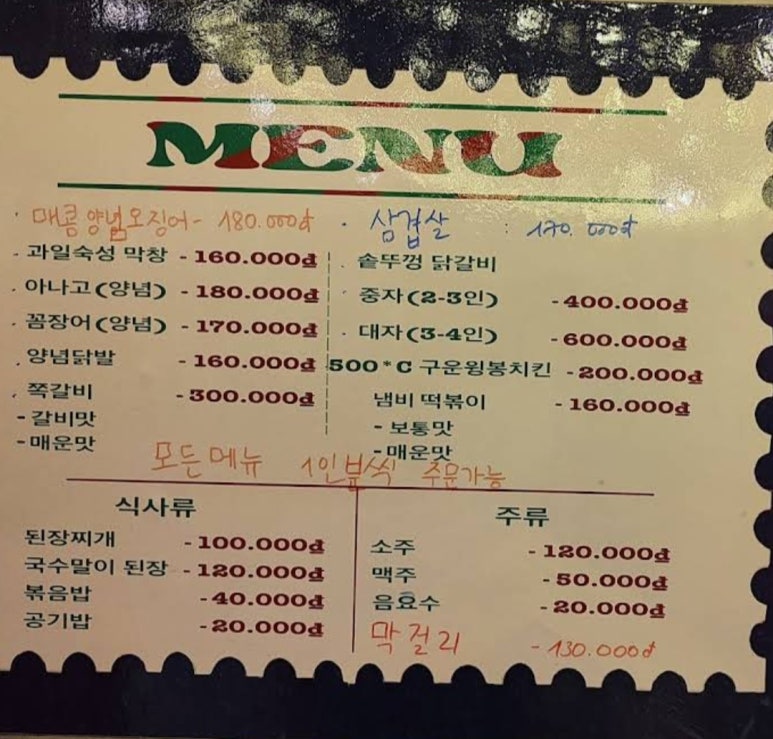 MENU
· 매콤양념오징어 - 180.000đ
· 삼겹살 : 170.000đ
. 과일숙성 막창 - 160.000đ
. 아나고(양념) - 180.000đ
. 꼼장어(양념) - 170.000đ
. 양념닭발 - 160.000đ
. 쪽갈비 - 300.000đ
- 갈비맛
- 매운맛
. 솥뚜껑 닭갈비
. 중자(2-3인) - 400.000đ
. 대자(3-4인) - 600.000đ
500°C 구운윙봉치킨 - 200.000đ
냄비 떡볶이 - 160.000đ
- 보통맛
- 매운맛
모든메뉴 1인분씩 주문가능
식사류
된장찌개 - 100.000đ
국수말이 된장 - 120.000đ
볶음밥 - 40.000đ
공기밥 - 20.000đ
주류
소주 - 120.000đ
맥주 - 50.000đ
음료수 - 20.000đ
막걸리 - 130.000đ